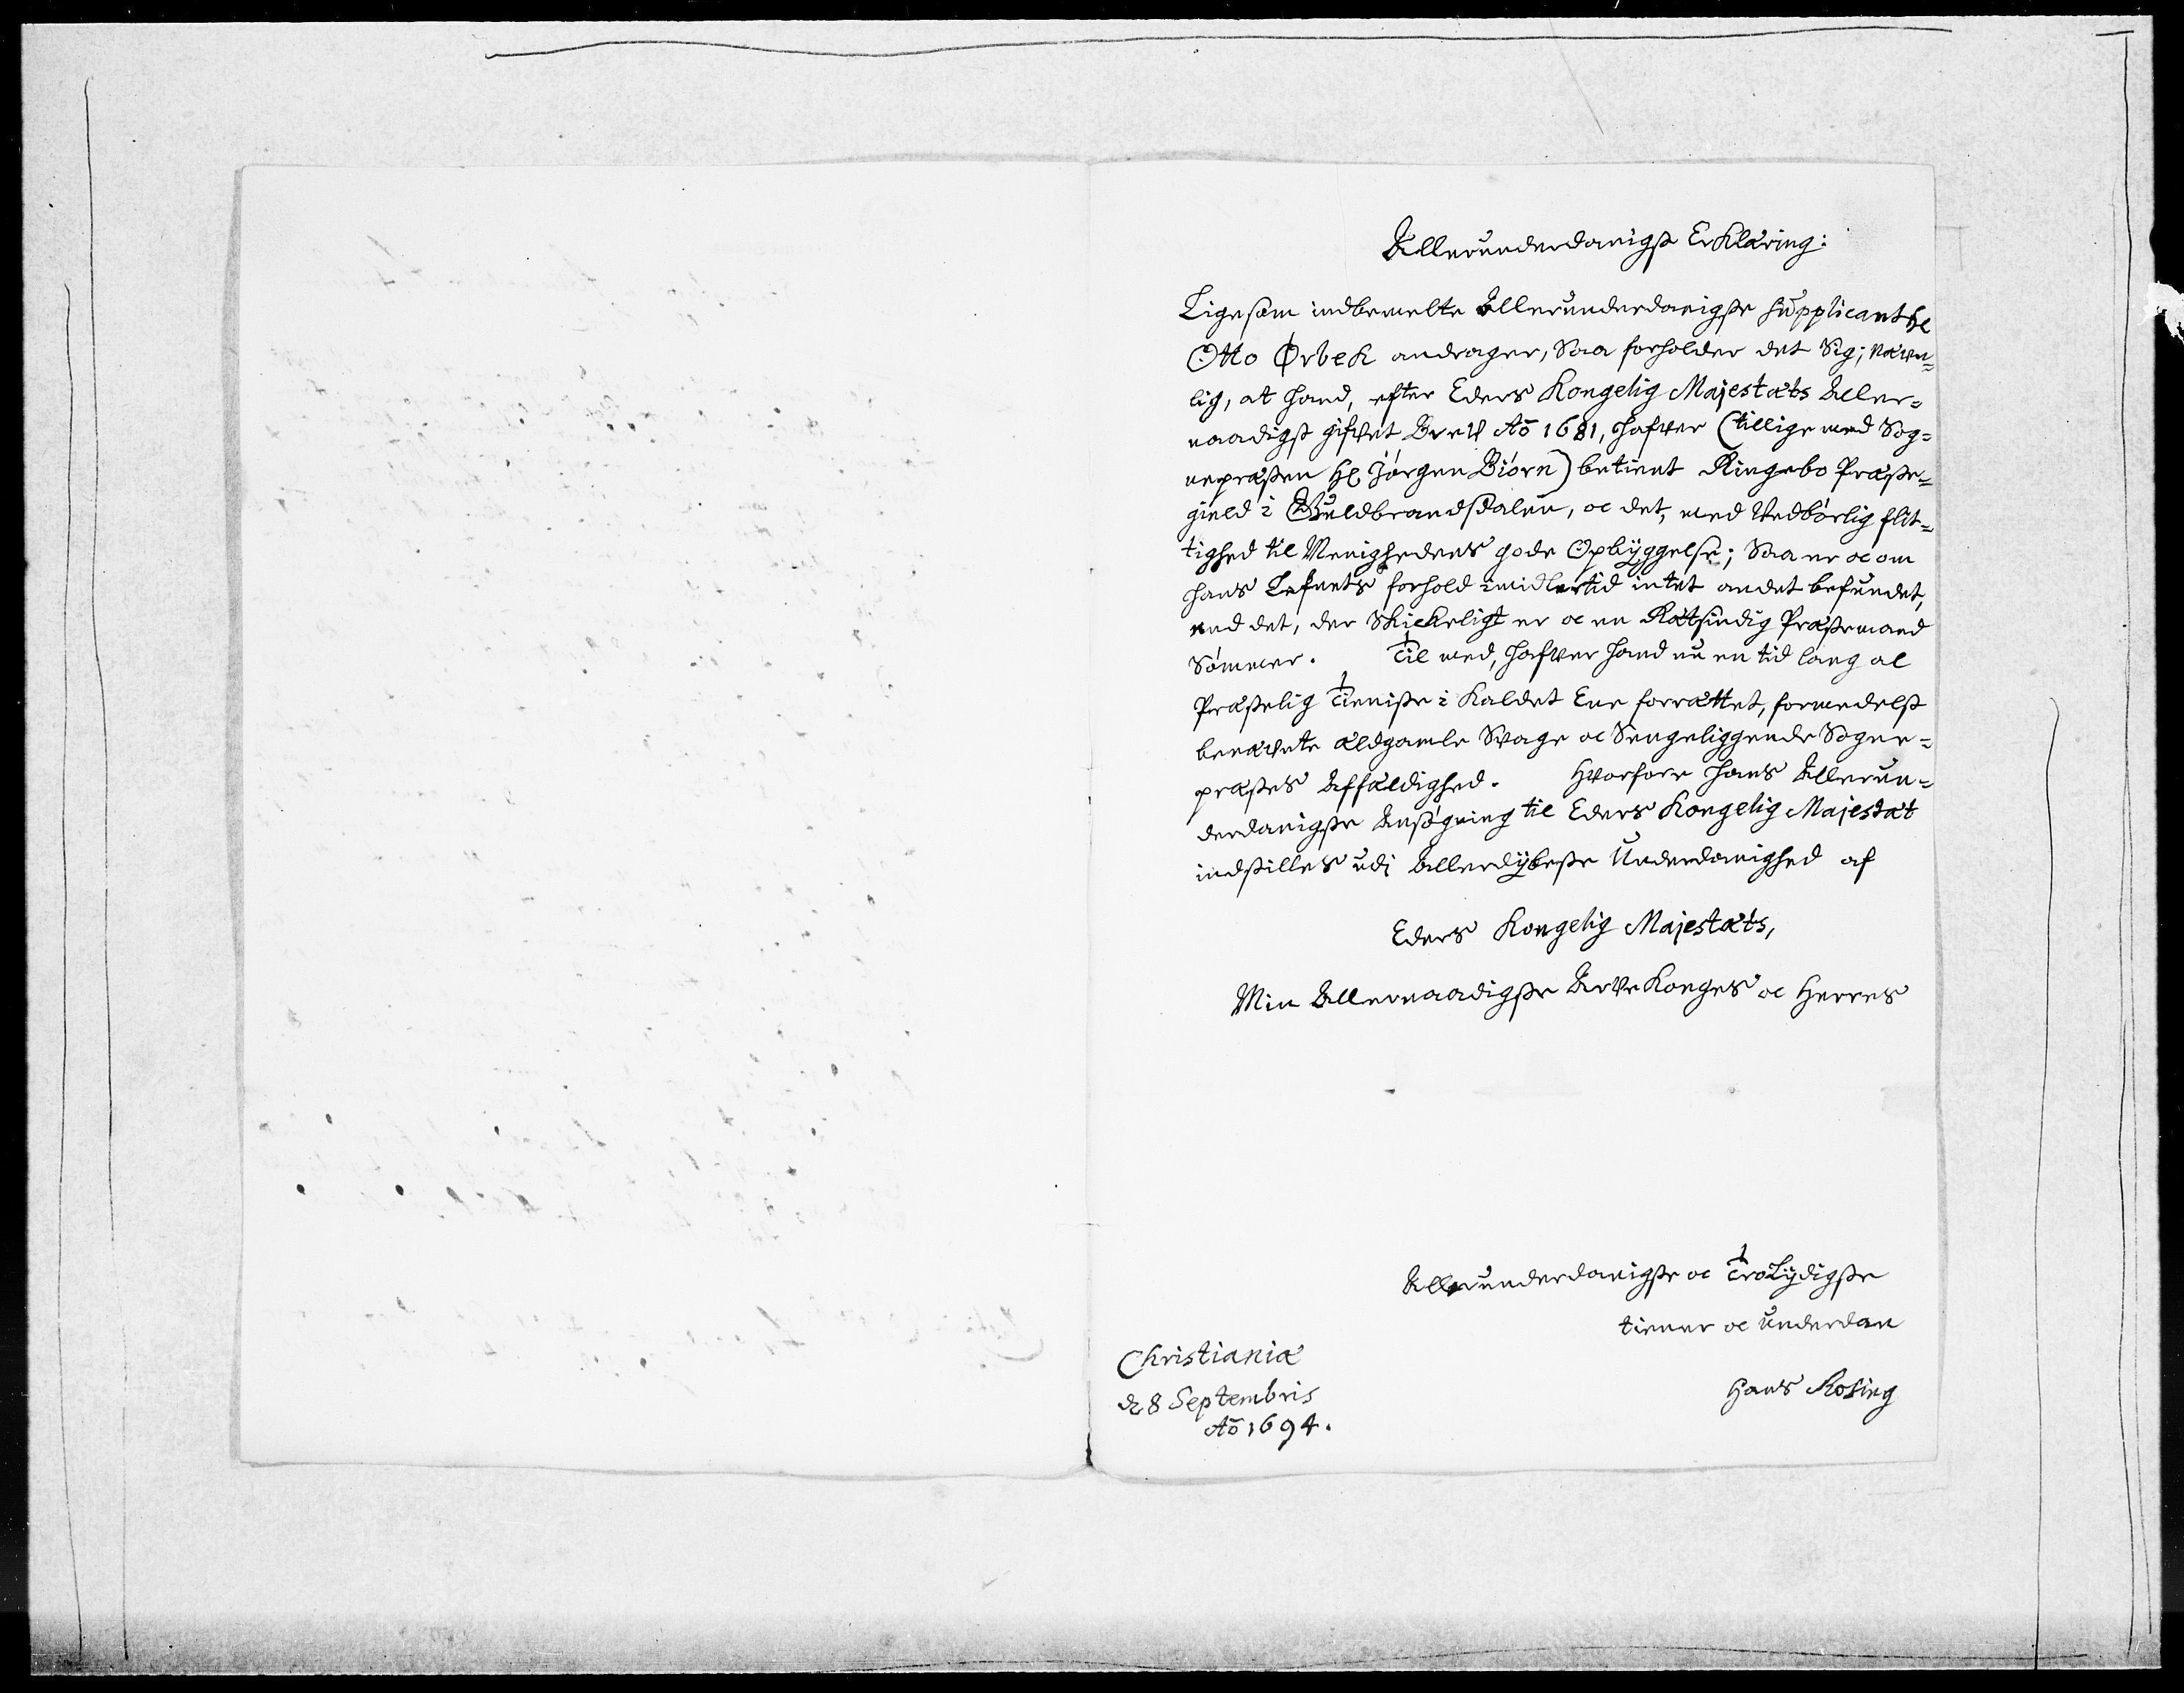 Allerunderdanigst Erklæring:
Ligesom indbemelte Allerunderdanigste Supplicant Hr
Otto Ørbek andrager, Saa forholder det Sig; nævn=
lig, at hand, efter Eders Kongelig Majestæts Aller=
naadigst gifvet Brev Aõ 1681, hafver (tillige med Sog=
nepræsten Hr Jørgen Biørn) betient Ringebo Præste=
gield i Guldbrandsdalen, oc det, med Vedbørlig flit=
tighed til Menighedens gode Opbyggelse; Saa er oc om
hans Lefnets forhold imidlertid intet andet befundet,
end det, der Skickeligt er oc en Rætsindig Præstemand
Sømmer. Til med, hafver hand nu en tid lang al
Præstelig Tieniste i Kaldet Ene forrættet, formedelst
benævnte ældgamle Svage oc Sengeliggende Sogne=
præstes Affældighed. Hvorfore hans Allerun=
derdanigste Ansøgning til Eders Kongelig Majestæt
indstilles udj Allerdybeste Underdanighed af
Eders Kongelig Majestæts,
Min Allernaadigste Arve Konges oc Herres
Allerunderdanigste oc TroLydigste
tiener oc Underdan
Hans Rosing
Christianiæ
d 8 Septembris
Aõ 1694.